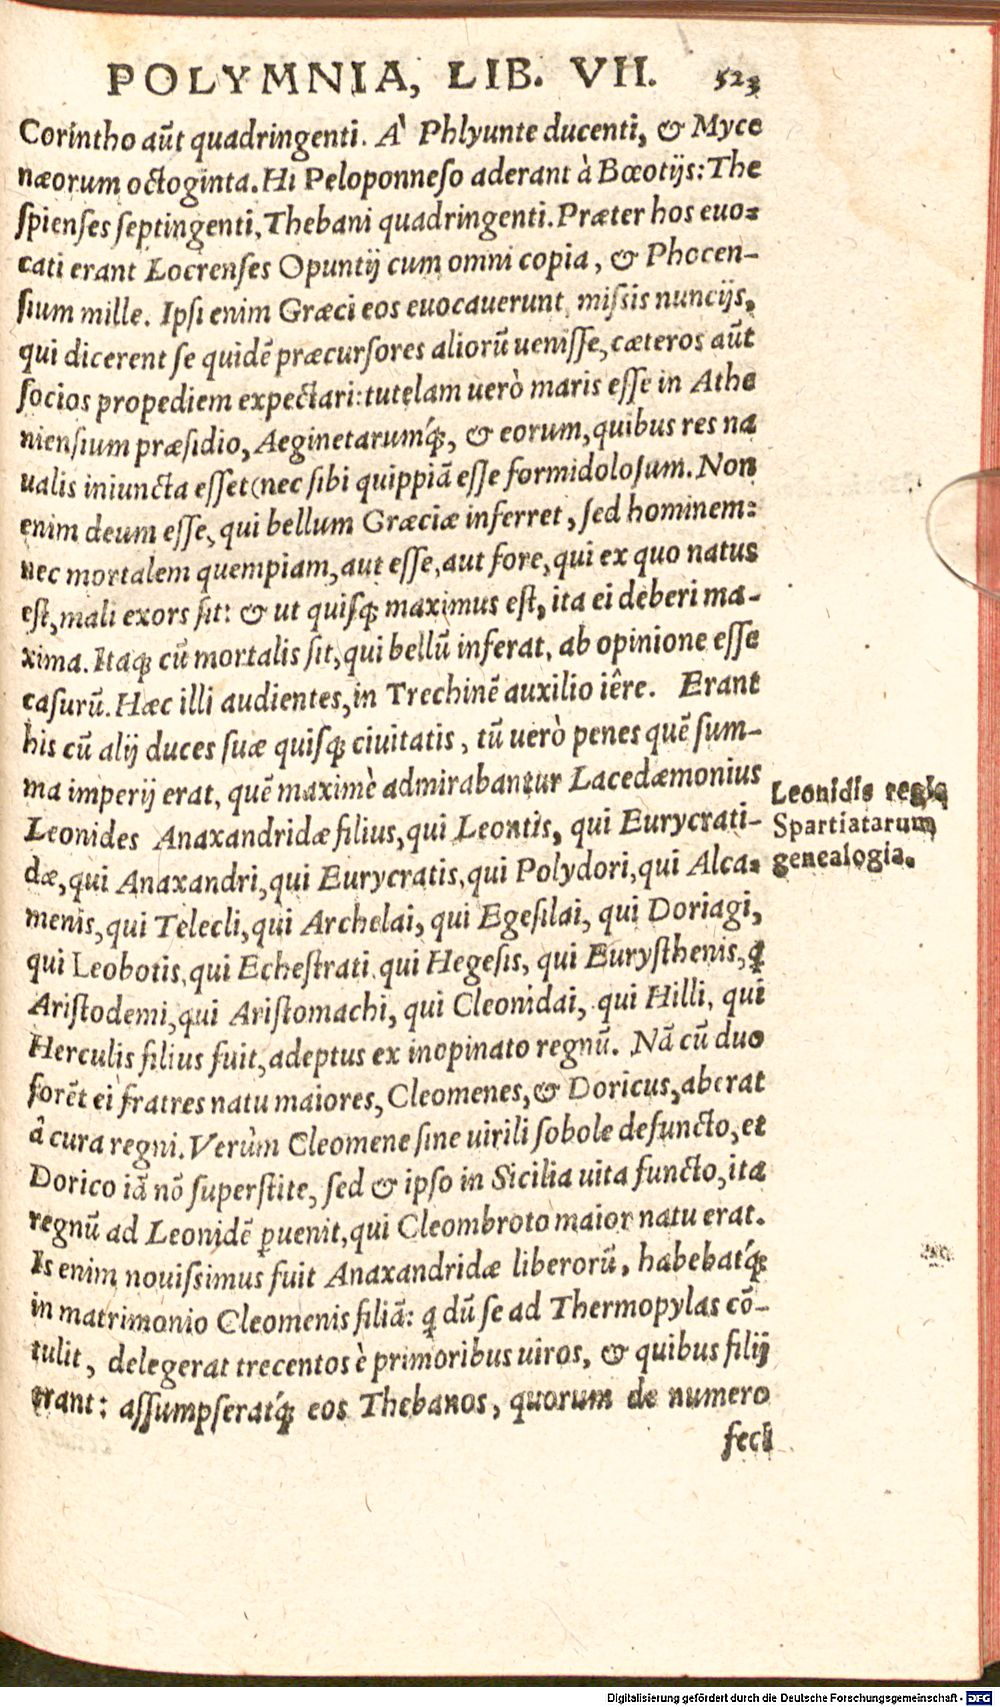 POLYMNIA, LIB. VII. 523
Corintho aūt quadringenti. A` Phlyunte ducenti, & Myce
næorum octoginta. Hi Peloponneſo aderant à Bœotijs: The
ſpienſes ſeptingenti, Thebani quadringenti. Præter hos euo⸗
cati erant Locrenſes Opuntij cum omni copia, & Phocen-
ſium mille. Ipſi enim Græci eos euocauerunt, miſsis nuncijs,
qui dicerent ſe quidē præcurſores aliorū ueniſſe, cæteros aūt
ſocios propediem expectari: tutelam uerò maris eſſe in Athe
nienſium præſidio, Aeginetarumq́;, & eorum, quibus res na
ualis iniuncta eſſet(nec ſibi quippiā eſſe formidoloſum. Non
enim deum eſſe, qui bellum Græciæ inferret, ſed hominem:
nec mortalem quempiam, aut eſſe, aut fore, qui ex quo natus
eſt, mali exors ſit: & ut quiſq; maximus eſt, ita ei deberi ma-
xima. Itaq; cū mortalis ſit, qui bellū inferat, ab opinione eſſe
caſurū. Hæc illi audientes, in Trechinē auxilio iêre. Erant
his cū alij duces ſuæ quiſq; ciuitatis, tū uerò penes quē ſum-
ma imperij erat, quē maximè admirabantur Lacedæmonius
Leonides Anaxandridæ filius, qui Leontis, qui Eurycrati-
dæ, qui Anaxandri, qui Eurycratis, qui Polydori, qui Alca⸗
menis, qui Telecli, qui Archelai, qui Egeſilai, qui Doriagi,
qui Leobotis, qui Echeſtrati, qui Hegeſis, qui Euryſthenis, q̃
Ariſtodemi, qui Ariſtomachi, qui Cleonidai, qui Hilli, qui
Herculis filius fuit, adeptus ex inopinato regnū. Nā cū duo
forēt ei fratres natu maiores, Cleomenes, & Doricus, aberat
â cura regni. Verùm Cleomene ſine uirili ſobole defuncto, et
Dorico iā nō ſuperſtite, ſed & ipſo in Sicilia uita functo, ita
regnū ad Leonidē ꝑuenit, qui Cleombroto maior natu erat.
Is enim nouiſsimus fuit Anaxandridæ liberorū, habebatq́;
in matrimonio Cleomenis filiā: q̃ dū ſe ad Thermopylas cō-
tulit, delegerat trecentos è primoribus uiros, & quibus filij
erant: aſſumpſeratq́; eos Thebanos, quorum de numero
feci
Leonidis regiq
Spartiatarum
genealogia.
Digitalisierung gefördert durch die Deutsche Forschungsgemeinschaft - DFG